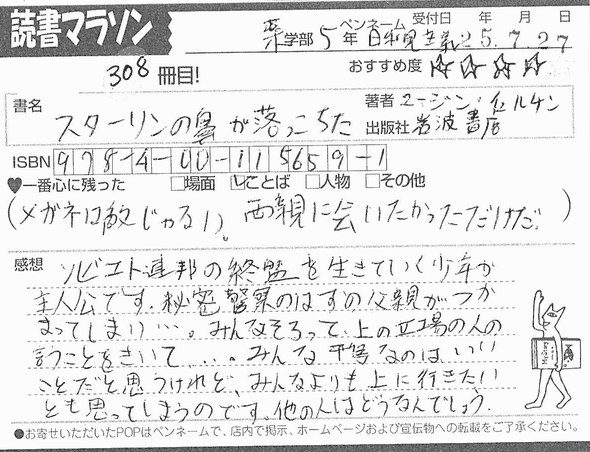 読書マラソン
薬学部 5年 ペンネーム 日和見主義 受付日 25年7月27日
308冊目!
おすすめ度 ☆☆☆☆
書名 スターリンの鼻が落っこちた
著者 ユージン・イェルチン
出版社 岩波書店
ISBN 978-4-00-115659-1
♥一番心に残った □場面 ☑ことば □人物 □その他
(メガネは敵じゃない。両親に会いたかっただけだ)
感想 ソビエト連邦の終盤を生きていく少年が
主人公です。秘密警察のはずの父親がつか
まってしまい…。みんなそろって、上の立場の人の
言うことをきいて…。みんな平等なのは、いい
ことだと思うけれど、みんなよりも上に行きたい
とも思ってしまうのです。他の人はどうなんでしょう。
●お寄せいただいたPOPはペンネームで、店内で掲示、ホームページおよび宣伝物への転載をご了承ください。